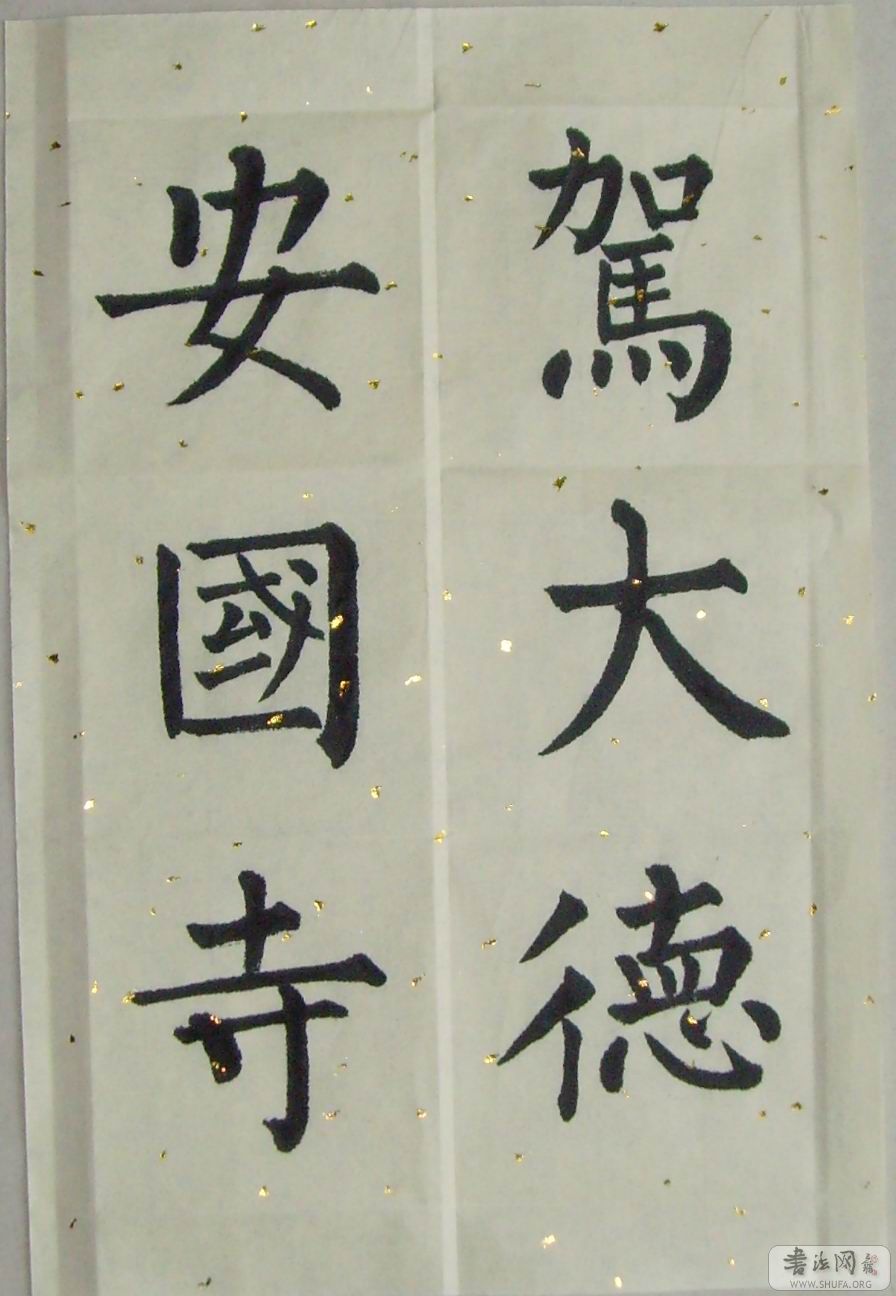 駕大德
安國寺
書法网
WWW.SHUFA.ORG